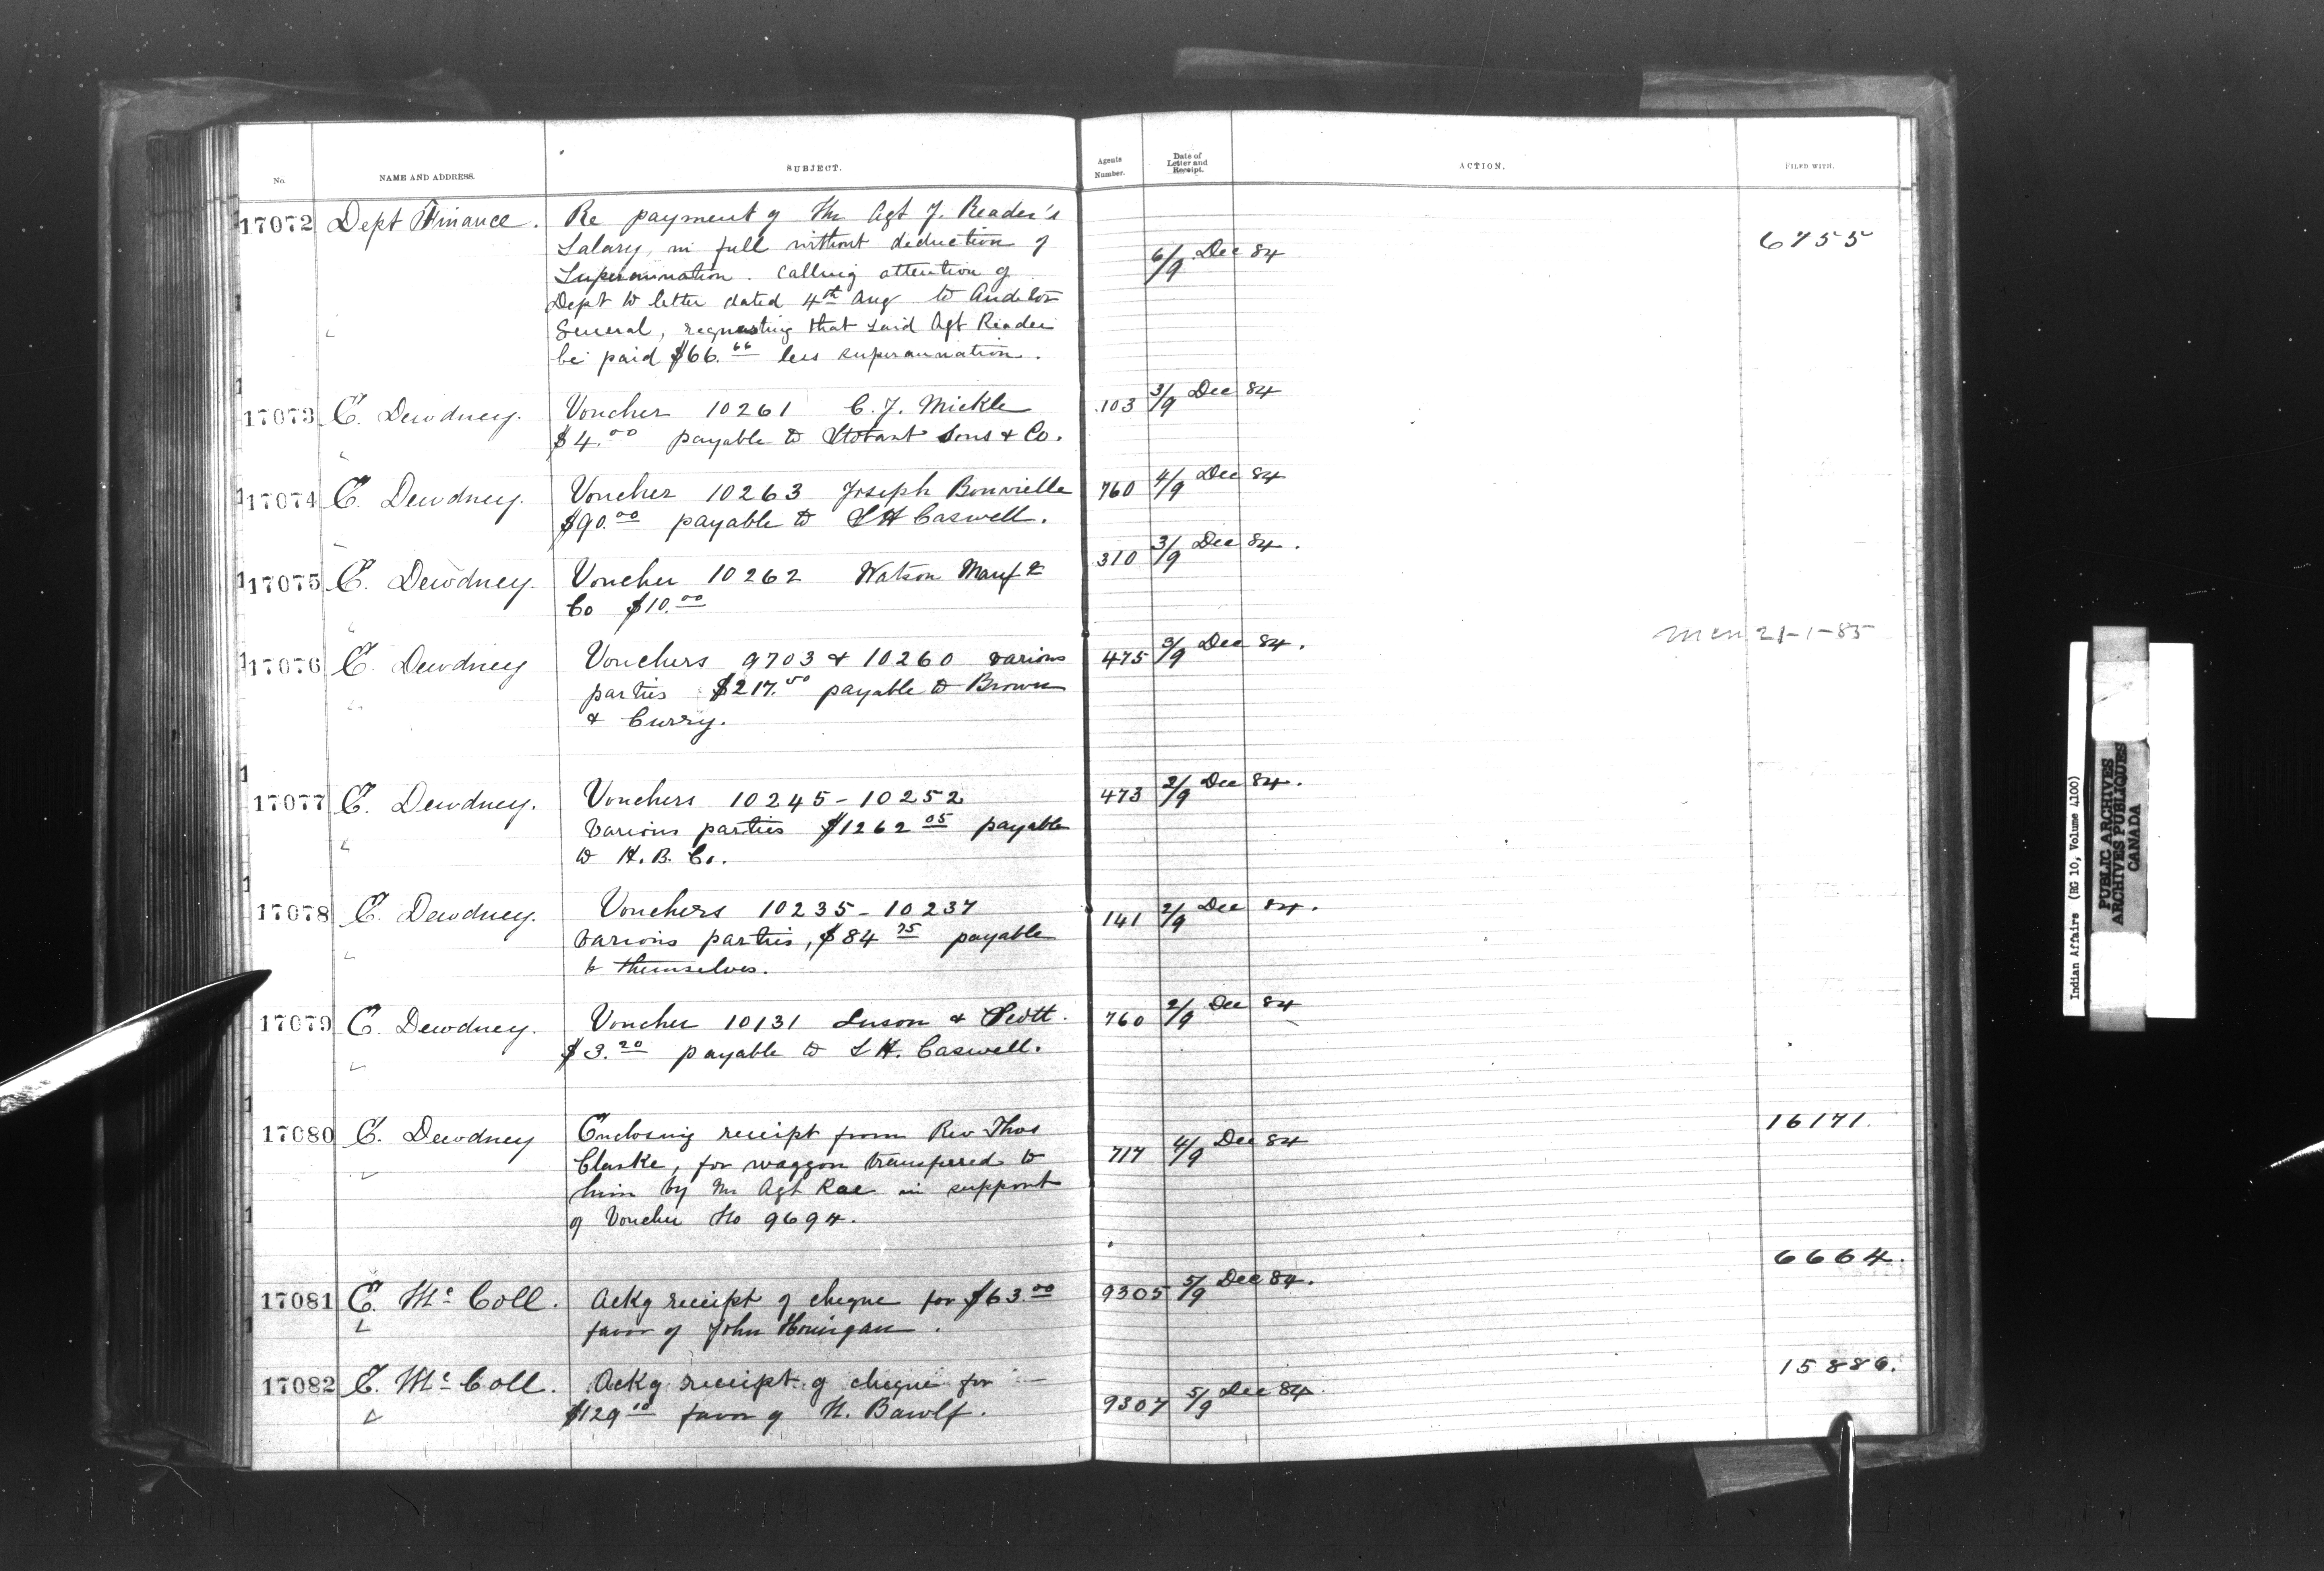 No. NAME AND ADDRESS. SUBJECT. Agents Number. Date of Letter and Receipt. ACTION. FILED WITH.
17072 Dept Finance. Re payment of Mr Agt J. Reader's
Salary, in full without deduction of
Superannuation. Calling attention of 6/9 Dec 84 6755
Dept to letter dated 4th Aug to Auditor
General, requesting that said Agt Reader
be paid $66.66 less superannuation.
17073 E. Dewdney. Voucher 10261 C. J. Mickle 103 3/9 Dec 84
$4.00 payable to Stobart Sons & Co.
17074 E. Dewdney. Voucher 10263 Joseph Bonvielle 760 4/9 Dec 84
$90.00 payable to L H Caswell.
17075 E. Dewdney. Voucher 10262 Watson Manfg 310 3/9 Dec 84.
Co $10.00
17076 E. Dewdney Vouchers 9703 & 10260 various 475 3/9 Dec 84. mem 21-1-85
parties $217.50 payable to Brown
& Curry.
17077 E. Dewdney. Vouchers 10245-10252 473 2/9 Dec 84.
various parties $1262 05 payable
to H. B. Co.
17078 E. Dewdney. Vouchers 10235-10237 141 2/9 Dec 84.
various parties, $84 75 payable
to themselves.
17079 E. Dewdney. Voucher 10131 Luson & Scott. 760 2/9 Dec 84
$3.20 payable to L H. Caswell.
17080 E. Dewdney Enclosing receipt from Rev Thos 16171.
Clarke, for waggon transfered to 717 4/9 Dec 84
him by Mr Agt Rae in support
of Voucher No 9694.
17081 E. Mc Coll. Ackg receipt of cheque for $63.00 9305 5/9 Dec 84. 6664.
favor of John Honigan.
17082 E. Mc Coll. Ackg receipt of cheque for 15886.
$129 10 favor of N. Bawlf. 9307 5/9 Dec 84.
Indian Affairs (RG 10, Volume 4100)
PUBLIC ARCHIVES
ARCHIVES PUBLIQUES
CANADA